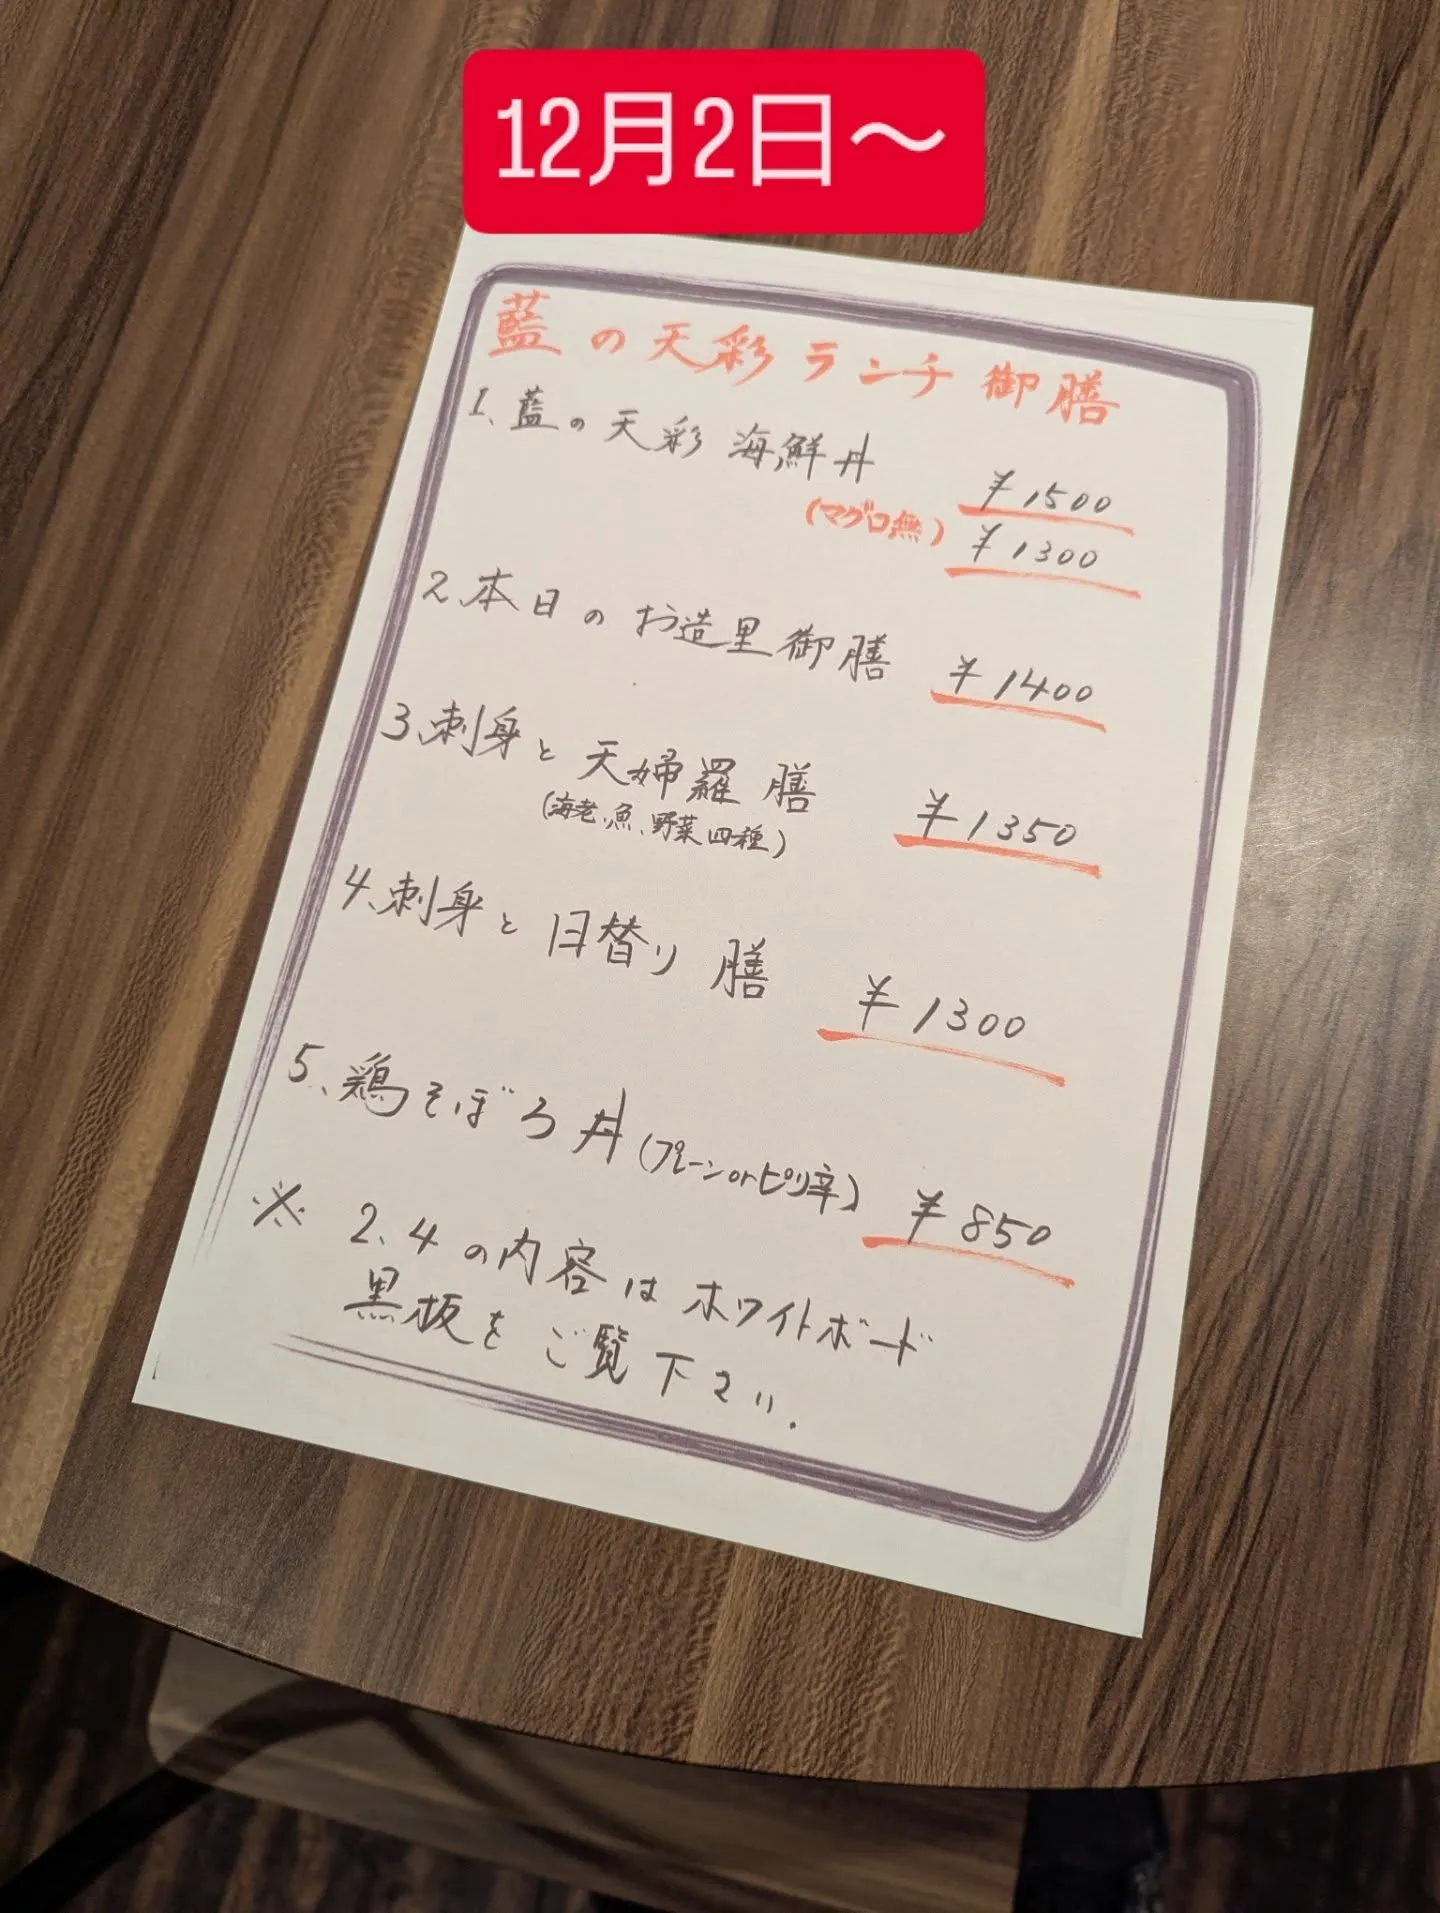 12月2日〜
藍の天彩ランチ御膳
1、藍の天彩海鮮丼 ¥1500
(マグロ無) ¥1300
2、本日のお造里御膳 ¥1400
3、刺身と天婦羅膳 ¥1350
(海老、魚、野菜四種)
4、刺身と日替り膳 ¥1300
5、鶏そぼろ丼(プレーンorピリ辛) ¥850
※ 2、4の内容はホワイトボード
黒板をご覧下さい.